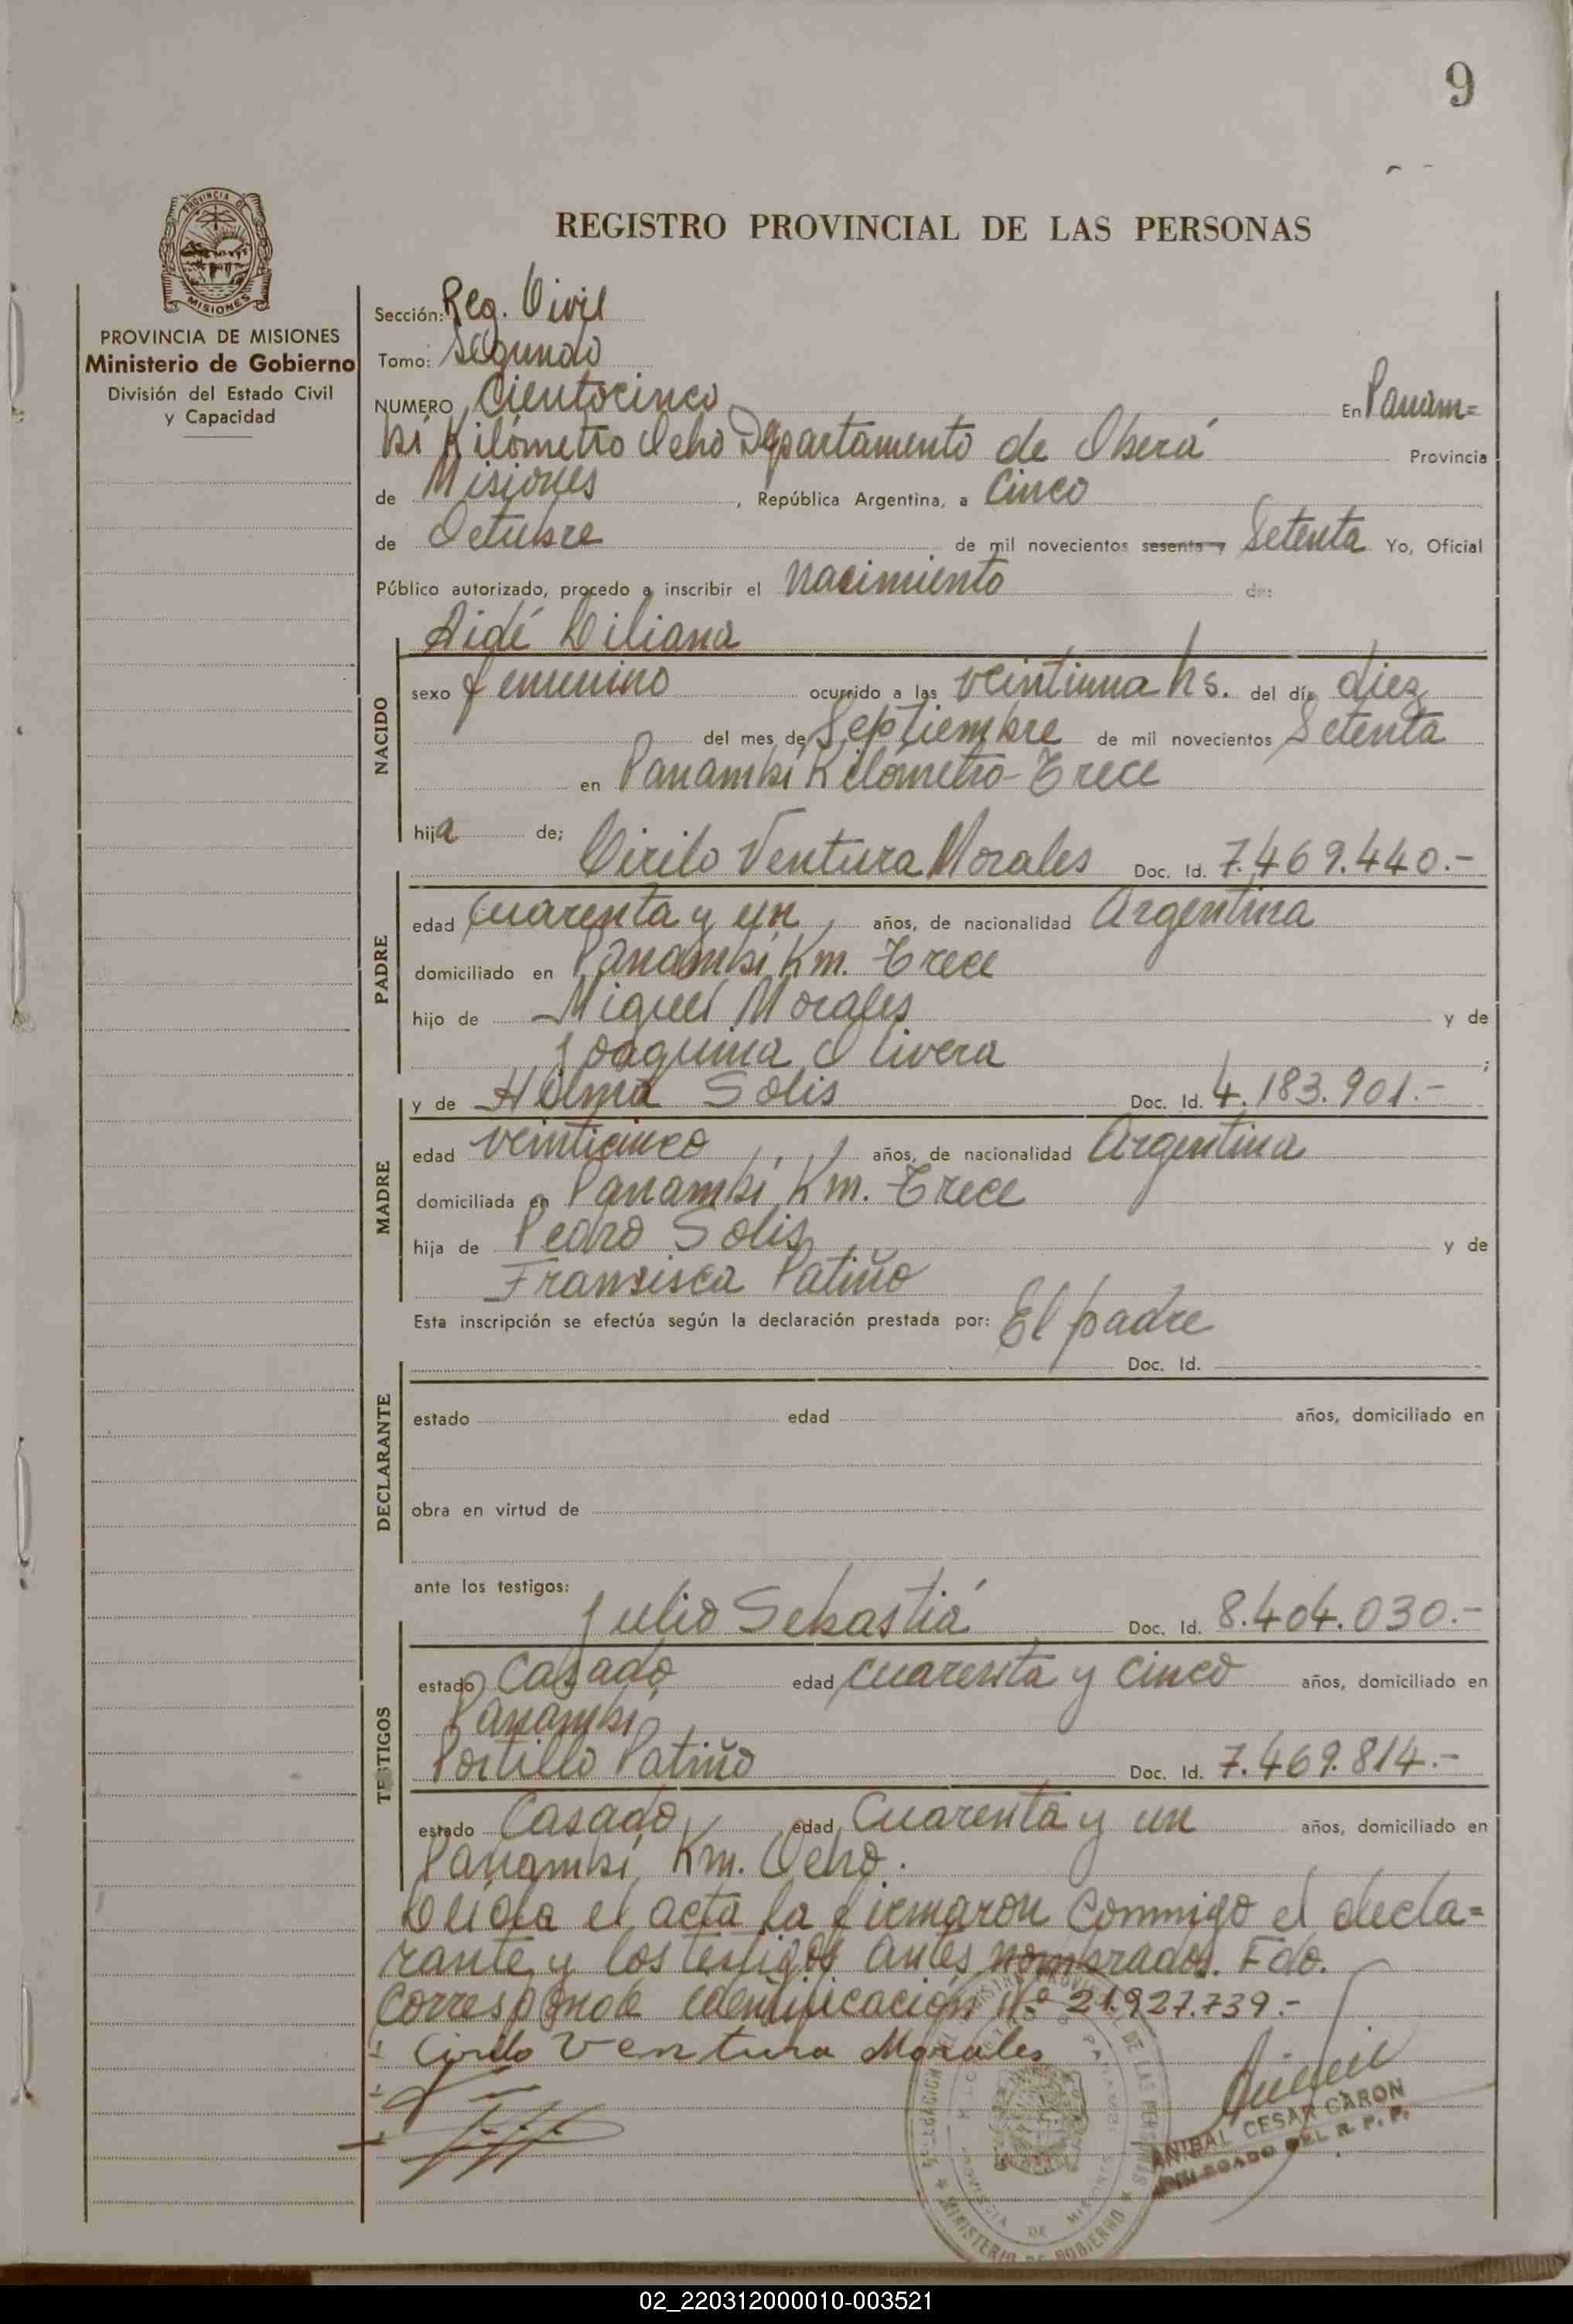 9
PROVINCIA DE
MISIONES
REGISTRO PROVINCIAL DE LAS PERSONAS
PROVINCIA DE MISIONES
Ministerio de Gobierno
División del Estado Civil
y Capacidad
Sección: Reg. Civil
Tomo: Segundo
NUMERO Cientocinco En Panam=
bí Kilómetro Ocho Departamento de Oberá Provincia
de Misiones, República Argentina, a Cinco
de Octubre de mil novecientos sesenta y Setenta Yo, Oficial
Público autorizado, procedo a inscribir el nacimiento de:
Aidé Liliana
NACIDO
sexo femenino ocurrido a las veintiuna hs. del día diez
del mes de Septiembre de mil novecientos Setenta
en Panambí Kilómetro Trece
hija de;
Cirilo Ventura Morales Doc. Id. 7.469.440.-
PADRE
edad Cuarenta y un años, de nacionalidad Argentina
domiciliado en Panambí Km. Trece
hijo de Miguel Morales y de
Joaquina Olivera;
y de Hilma Solis Doc. Id. 4.183.901.-
MADRE
edad veinticinco años, de nacionalidad Argentina
domiciliada en Panambí Km. Trece
hija de Pedro Solis y de
Fransisca Patiño
Esta inscripción se efectúa según la declaración prestada por: El padre
Doc. Id.
DECLARANTE
estado edad años, domiciliado en
obra en virtud de
ante los testigos:
Julio Sebastiá Doc. Id. 8.404.030.-
TESTIGOS
estado Casado edad Cuarenta y Cinco años, domiciliado en
Panambí
Portillo Patiño Doc. Id. 7.469.814.-
estado Casado edad Cuarenta y un años, domiciliado en
Panambí Km. Ocho.
Leída el acta la firmaron Conmigo el decla=
rante y los testigos antes nombrados. Fdo.
Corresponde identificación Nº 21.927.739.-
Cirilo Ventura Morales
ANIBAL CESAR CARON
DELEGADO DEL R. P. P.
MINISTERIO DE GOBIERNO
02_220312000010-003521